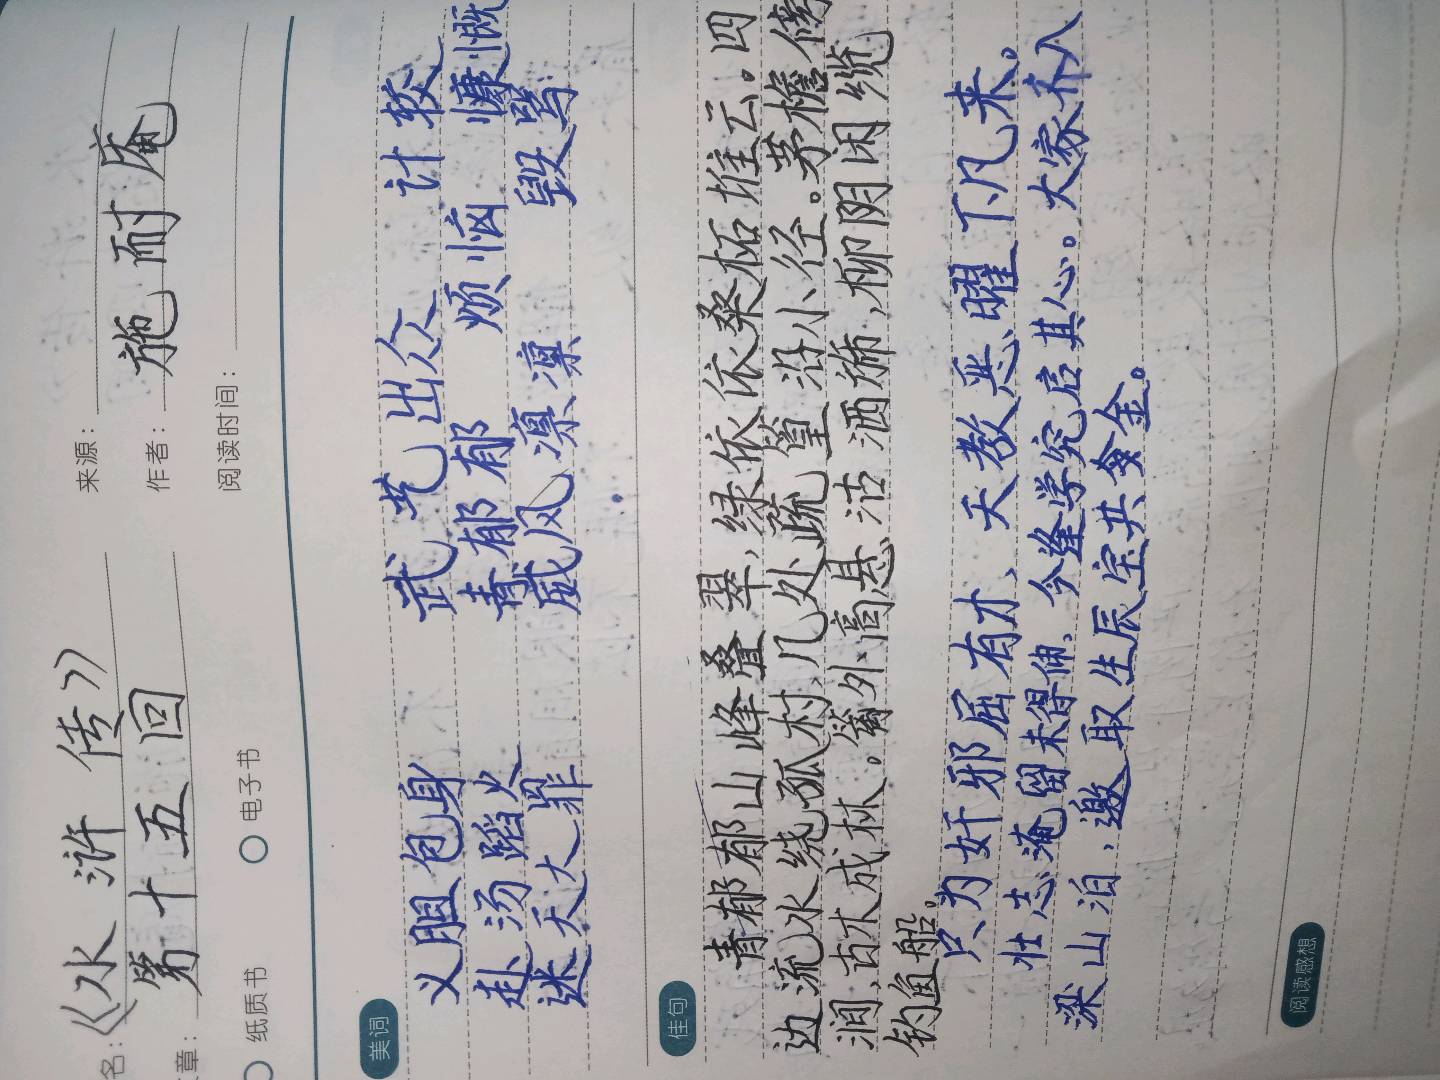 名：《水浒传》 来源：
章：第十五回 作者：施耐庵
纸质书 电子书 阅读时间：
美词
义胆包身 武艺出众 计较
赴汤蹈火 青郁郁 烦恼 慷慨
迷天大罪 威风凛凛 毁骂
佳句
青郁郁山峰叠翠，绿依依桑柘堆云。四
边流水绕孤村，几处疏篁沿小径。茅檐傍
涧，古木成林。篱外高悬沽酒旆，柳阴闲缆
钓鱼船。
只为奸邪屈有才，天教恶曜下凡来。
壮志淹留未得伸，今逢学究启其心。大家齐入
梁山泊，邀取生辰宝共金。
阅读感想